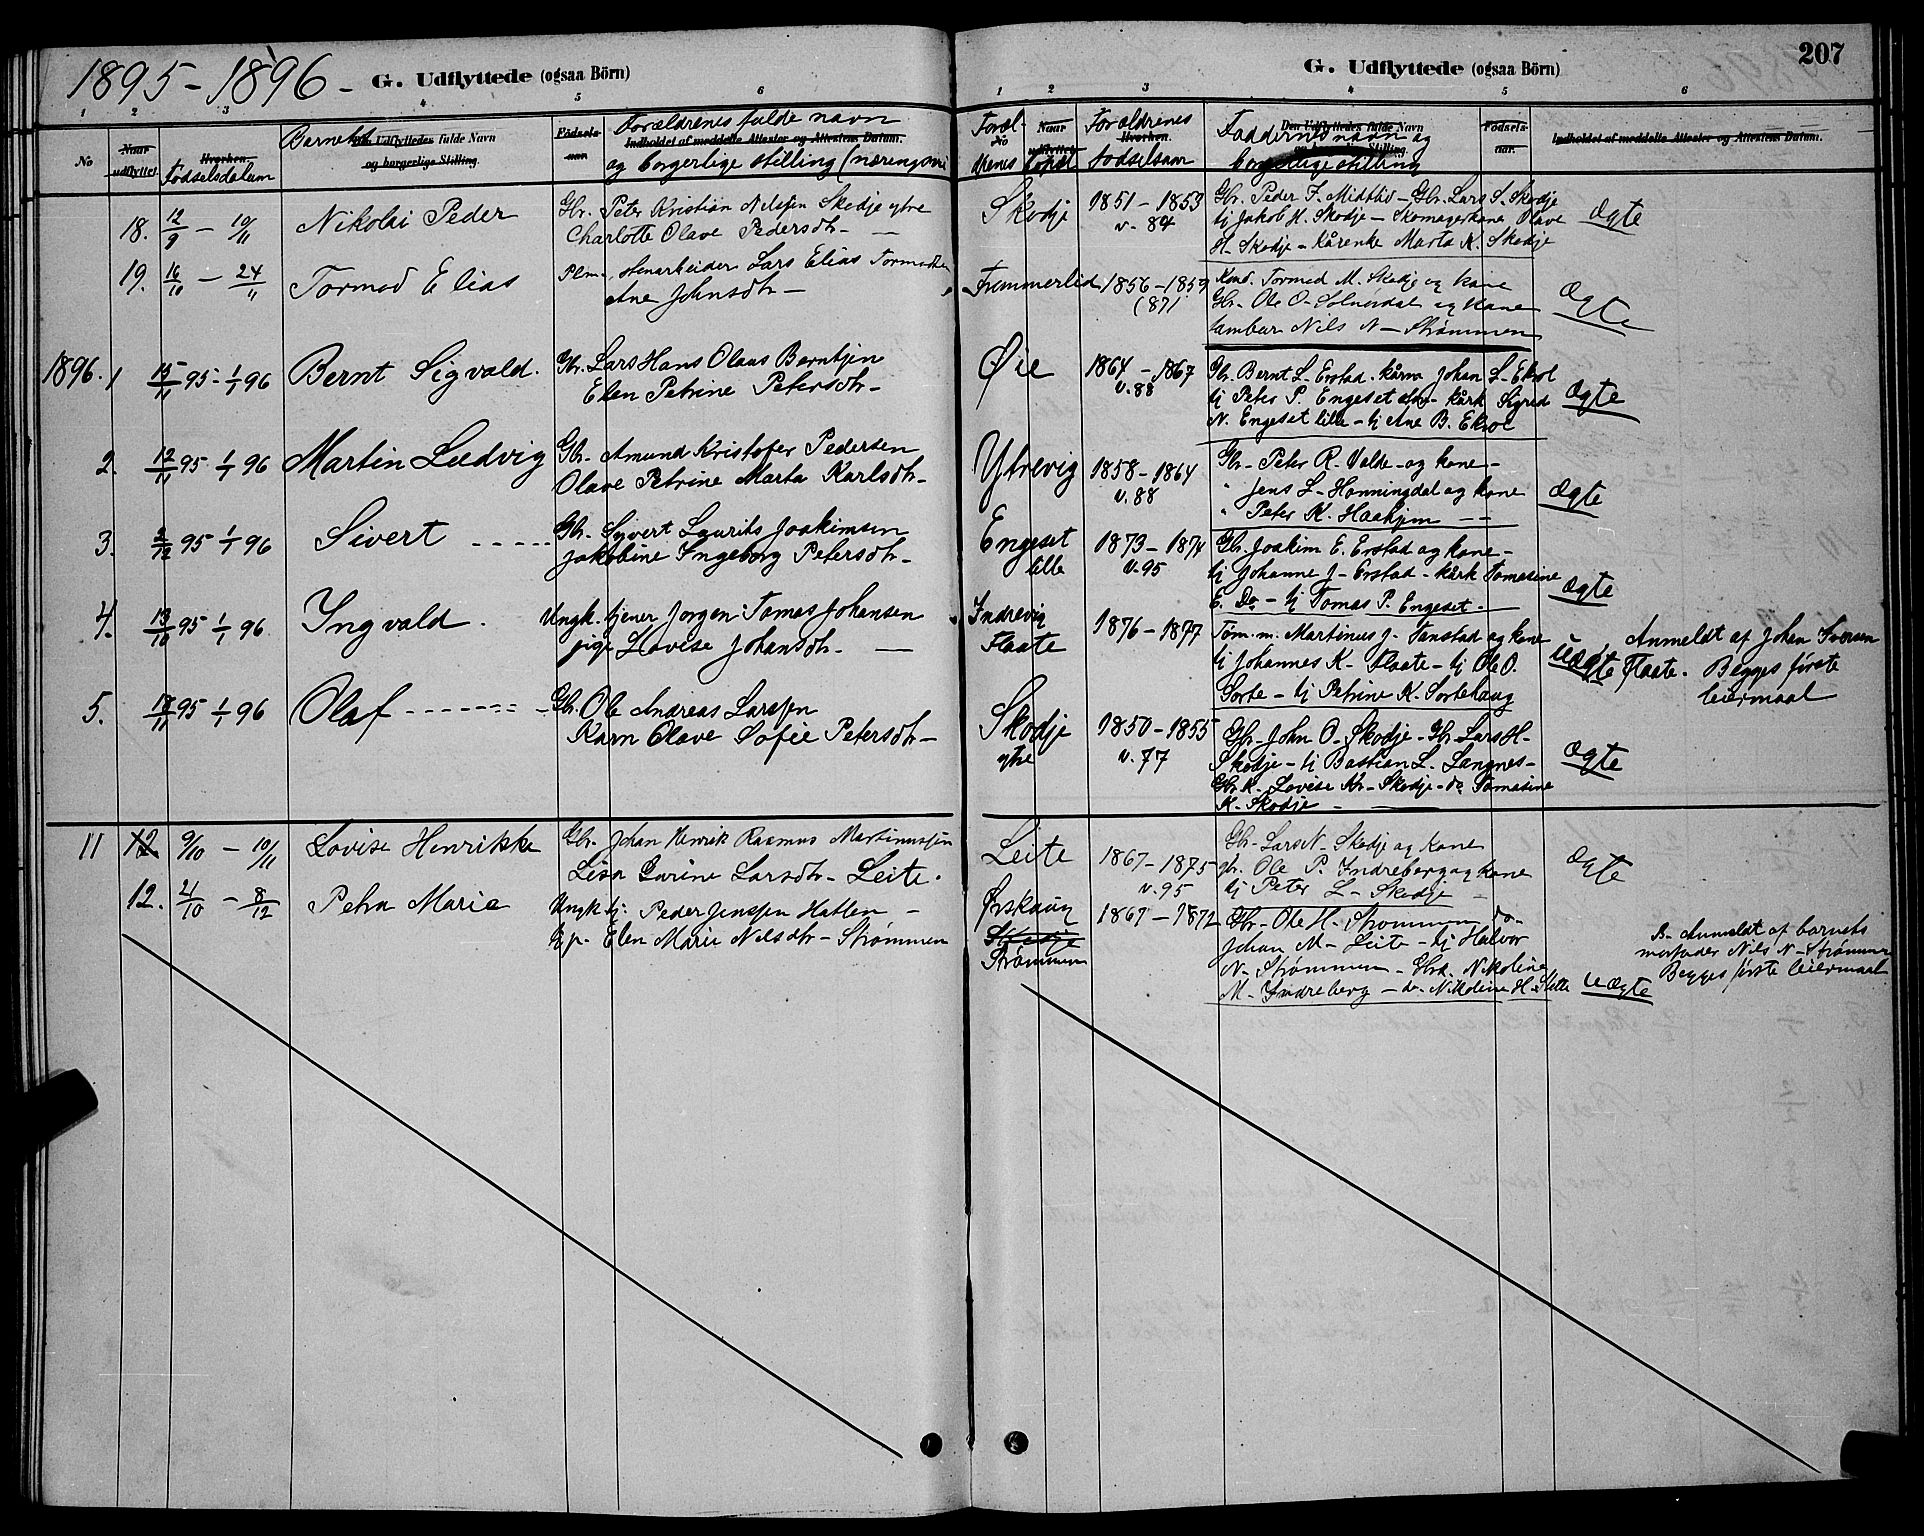 1895-1896 -
G. Udflyttede (ogsaa Börn)
1 2 3 4 5 6
No
Naar udflyttet
Hvorhen
Fødselsdatum
Barnets
Den Udflyttedes fulde Navn
og borgerlige Stilling.
Födsels-
aar
Forældrenes fulde navn
Indholdet af meddelte Attester og Attestens Datum.
og borgerlige stilling (næringsvei
18. 12/9 - 10/11 Nikolai Peder
Gbr. Peter Kristian Nilssen Skodje ytre
Charlotte Olave Pedersdtr -
19. 16/10 - 24/11 Tormod Elias
Plm. stenarbeider Lars Elias Tormodsen
Ane Johnsdtr -
1896. 1 15/11 95 - 1/1 96 Bernt Sigvald.
Gbr. Lars Hans Olaus Berntsen
Elen Petrine Petersdtr -
2. 12/11 95 1/1 96 Martin Ludvig
Gbr. Amund Kristofer Pedersen
Olave Petrine Marta Karlsdtr -
3. 2/12 95 1/1 96 Sivert
Gbr. Syvert Laurits Joakimsen
Jakobine Ingeborg Petersdtr -
4. 13/10 95 1/1 96 Ingvald .
Ungk. tjener Jørgen Tomas Johansen
pige Lovise Johansdtr. -
5. 95 1/1 96 Olaf
Gbr. Ole Andreas Larssen
Karn Olave Sofie Petersdtr -
11 12. 9/10 - 10/11 Lovise Henrikke
Gbr. Johan Henrik Rasmus Martinussen
Lisa Gurine Larsdtr - Leite.
12. 21/10 - 8/12 Petra Marie
Ungk. tj. Peder Jenssen Hatlen -
Elen Marie Nilsdtr - Strømmen
207
G. Udflyttede (ogsaa Börn)
1 2 3 4 5 6
Foræl-
No
drenes
Naar
udflyttet
bopæl
Forældrenes
Hvorhen
fødselsaar
Den Udflyttedes fulde Navn
Faddernes navn og
Stilling.
borgerlige stilling
Födsels-
aar.
Indholdet af meddelte Attester og Attestens Datum.
Skodje 1851 - 1853
v. 84
Gbr. Peder J. Midtlid - Gbr. Lars S. Skodje
tj Jakob H. Skodje - Skomagerkone Olave
H. Skodje - Kårenke Marta K. Skodje
Ægte
Frummerlid 1856 - 1859
(87)
Tormod M. Skodje og kone
Gbr. Ole O. Solnørdal og kone
tambur Nils N - Strømmen
Ægte
Øie 1864 - 1867
v. 88
Gbr. Bernt L. Erstad. kårm Johan L. Ekrol
tj Peter P. Engeset - kårk Sigrid
N. Engeset lille - tj Ane B. Ekrol
Ægte
Ytrevig 1858 - 1864
v. 88
Gbr. Peter R. Valde - og kone -
" Jens L. Honningdal og kone
" Peter K. Haahjem - -
Ægte
Engeset
lille
1873 - 1874
v. 95
Gbr. Joakim E. Erstad og kone -
tj Johanne J - Erstad - kårk Tomasine
E. Do - tj Tomas P. Engeset -
Ægte
Indrevig
Flaate
1876 - 1877
Tøm. m. Martinus J. Tanstad og kone
tj Johannes K - Flaate - tj Ole O.
Sorte - tj Petrine K. Sortehaug
Uægte
Anmeldt af Johan Iversen
Flaate. Begges første
leiermaal
Skodje
ytre
1850 - 1855
v. 77
Gbr. John O. Skodje - Gbr. Lars H-
Skodje - tj Bastian L. Langnes -
Gbr. K. Lovise Kr - Skodje - do Tomasine
K. Skodje -
Ægte
Leite 1867 - 1875
v. 95
Gbr. Lars N - Skodje og kone
gbr. Ole P. Indreberg og kone
tj Peter L - Skodje -
Ægte
Ørskoug
Skodje
Strømmen
1867 - 1872
Gbr. Ole H. Strømmen do -
Johan M - Leite - tj Halvor
N - Strømmen - Gbrd. Nikoline
M. Indreberg - do. Nikoline H. Slette
Uægte
B. Anmeldt af barnets
morfader Nils N - Strømmen
Begges første leiermaal